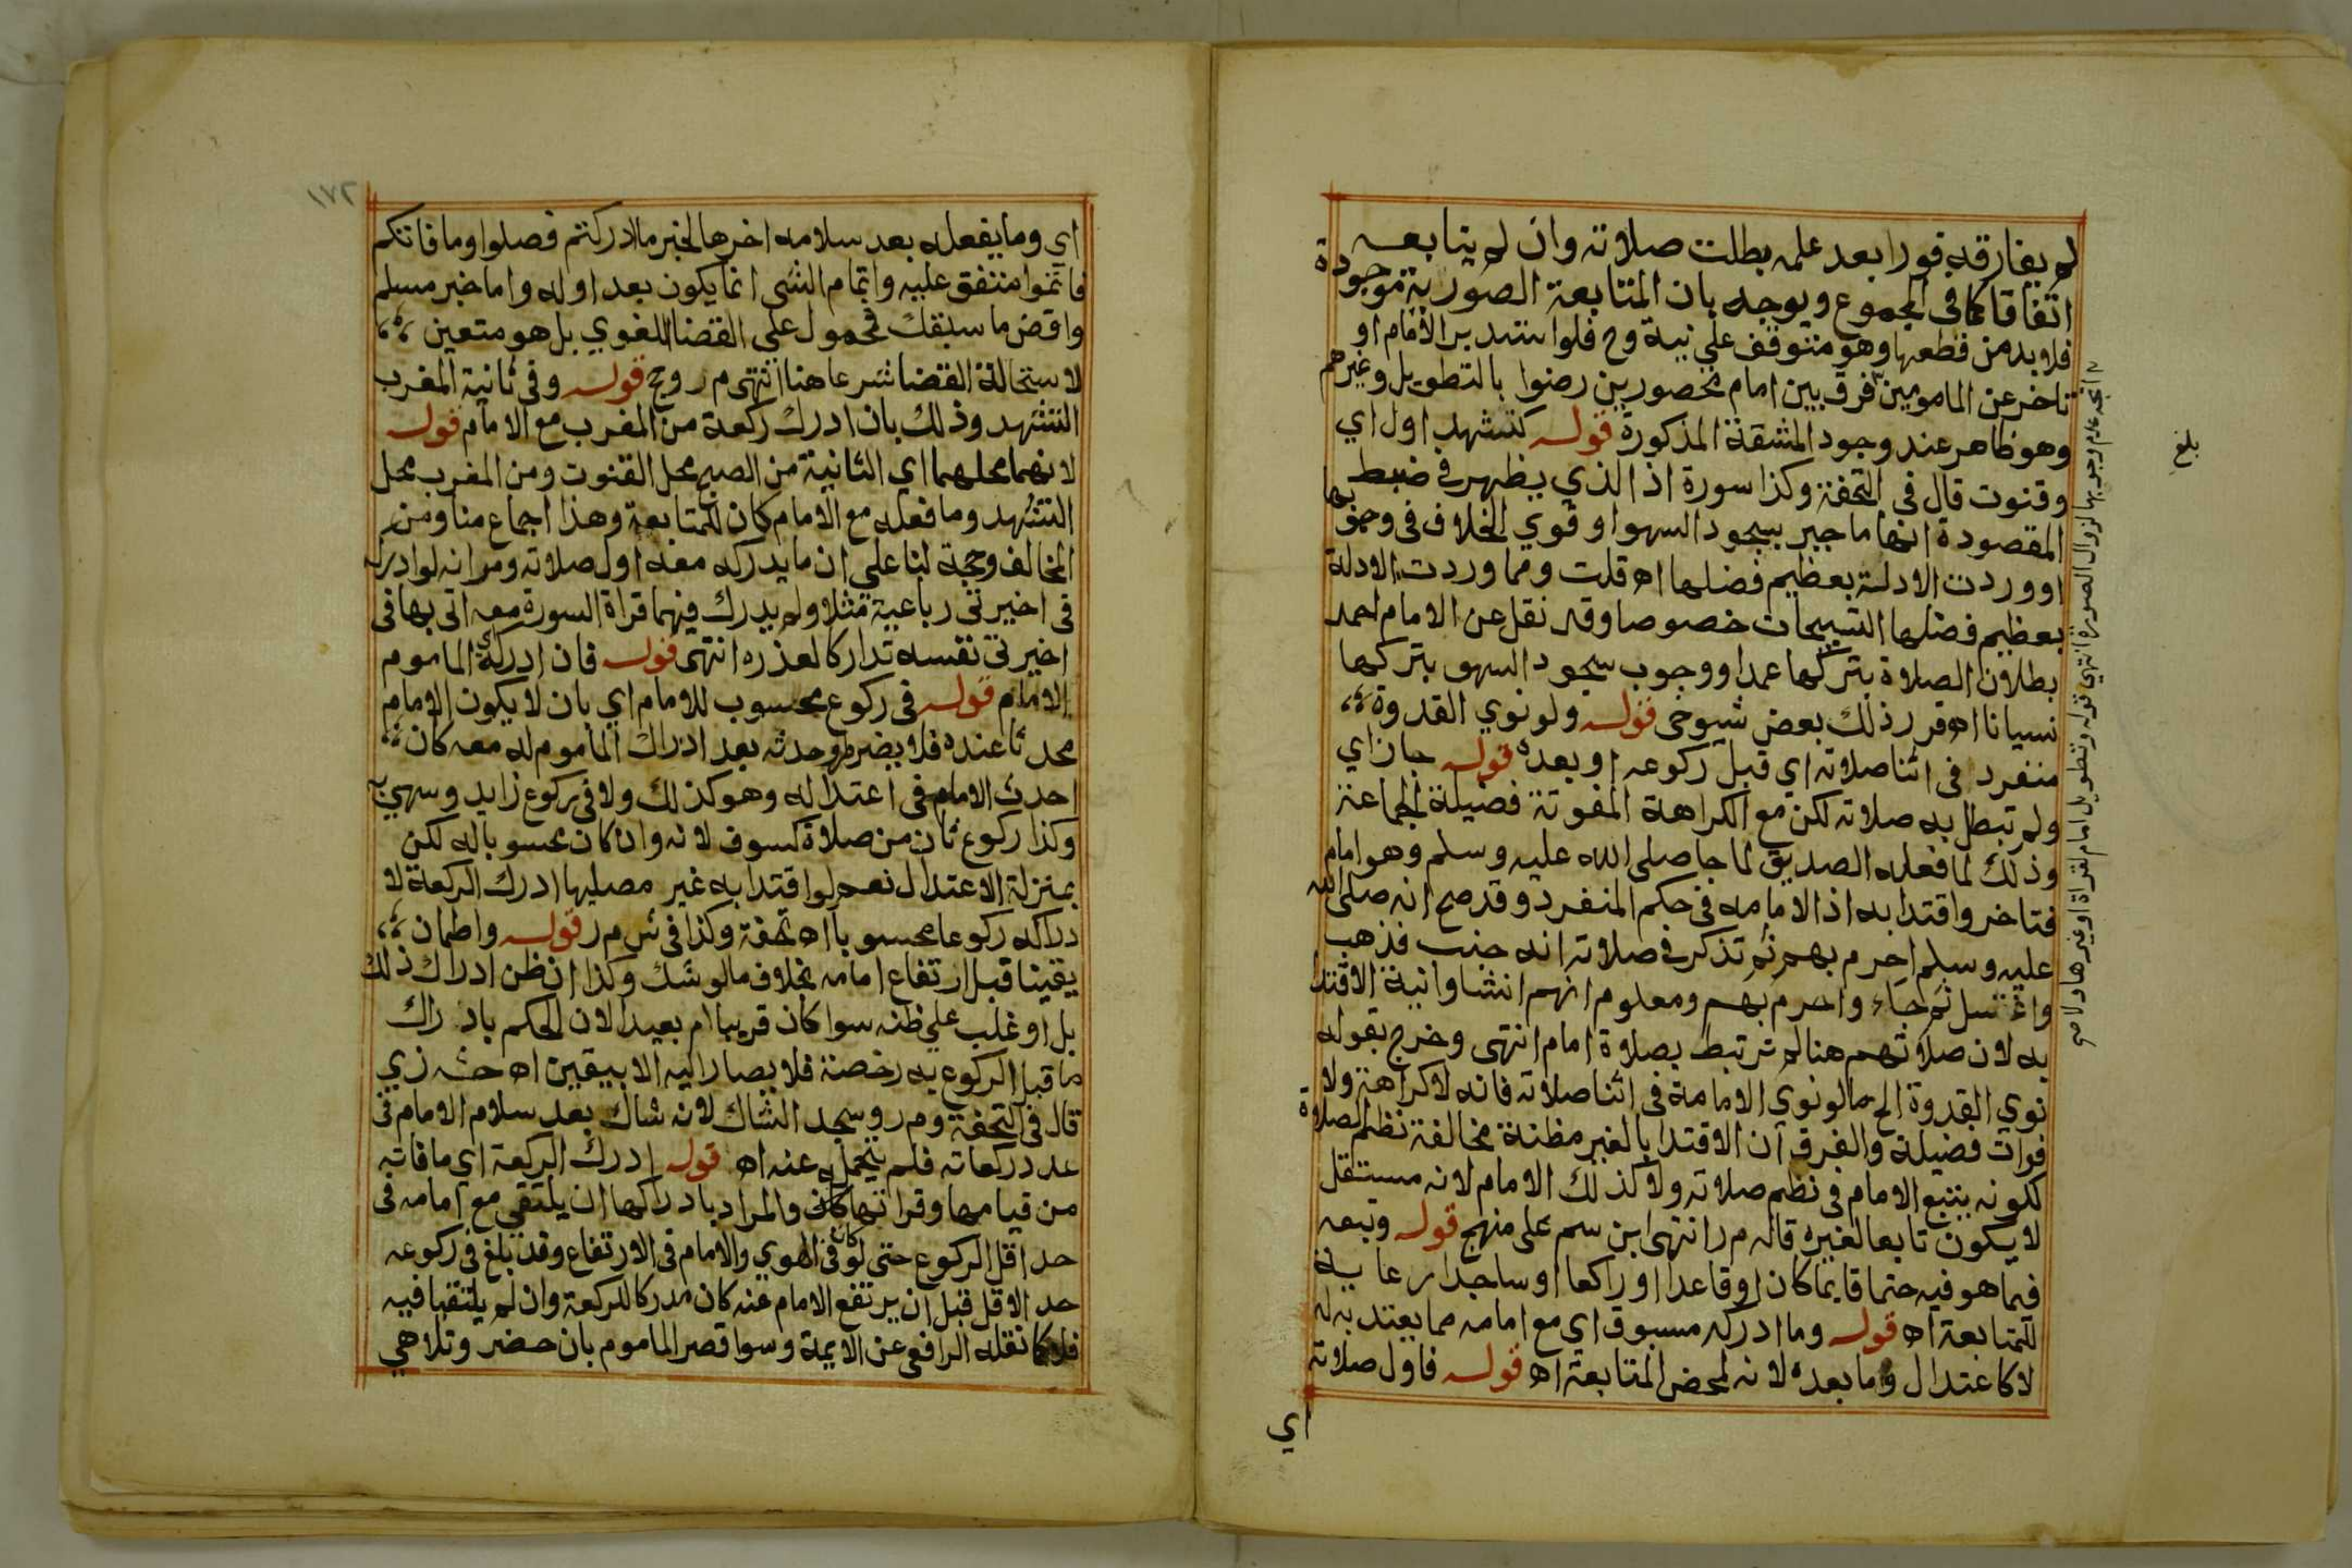 لم يفارقه فورا بعد علمه بطلت صلاته وان لم يتابعه
اتفاقا كما في المجموع ويوجه بان المتابعة الصورية موجودة
فلا بد من قطعها وهو متوقف على نية وح فلو استدبر الامام او
تاخر عن المامومين فرق بين امام محصورين رضوا بالتطويل وغيرهم
وهو ظاهر عند وجود المشقة المذكورة قوله كتشهد اول اي
وقنوت قال في التحفة وكذا سورة اذ الذي يظهر في ضبط
المقصودة انها ما جبر بسجود السهو او قوي الخلاف في وجوبها
او وردت الادلة بعظيم فضلها اه قلت ومما وردت الادلة
بعظيم فضلها التسبيحات خصوصا وقد نقل عن الامام احمد
بطلان الصلاة بتركها عمدا ووجوب سجود السهو بتركها
نسيانا اه قرر ذلك بعض شيوخي قوله ولو نوي القدوة
منفرد في اثنا صلاته اي قبل ركوعه او بعده قوله جاز اي
ولم تبطل به صلاته لكن مع الكراهة المفوتة فضيلة الجماعة
وذلك لما فعله الصديق لما جا صلى الله عليه وسلم وهو امام
فتاخر واقتدا به اذ الامامه في حكم المنفرد وقد صح انه صلى الله
عليه وسلم احرم بهم ثم تذكر في صلاته انه جنب فذهب
واغتسل ثم جاء واحرم بهم ومعلوم انهم انشاوا نية الاقتدا
به لان صلاتهم هنا لم ترتبط بصلاة امام انتهى وخرج بقوله
نوي القدوة الخ ما لو نوي الامامة في اثنا صلاته فانه لا كراهة ولا
فوات فضيلة والفرق ان الاقتدا بالغير مظنة مخالفة نظم الصلاة
لكونه يتبع الامام في نظم صلاته ولا كذلك الامام لانه مستقل
لا يكون تابعا لغيره قاله م ر انتهى ابن سم على منهج قوله وتبعه
فيما هو فيه حتما قايما كان او قاعدا او راكعا او ساجدا رعاية
للمتابعة اه قوله وما ادركه مسبوق اي مع امامه مما يعتد به له
لا كاعتدال وما بعده لانه لمحض المتابعة اه قوله فاول صلاته
اي
اتجه عدم وجوبها لزوال الصورة انتهى قوله وتطويل امام لقراة او غيرها ولا
بلغ
١٧٢
اي وما يفعله بعد سلامه اخرها لخبر ما ادركتم فصلوا وما فاتكم
فاتموا متفق عليه واتمام الشى انما يكون بعد اوله واما خبر مسلم
واقض ما سبقك فمحمول على القضا اللغوي بل هو متعين
لاستحالة القضا شرعا هنا انتهى م ر وحج قوله وفي ثانية المغرب
التشهد وذلك بان ادرك ركعة من المغرب مع الامام قوله
لانهما محلهما اي الثانية من الصبح محل القنوت ومن المغرب محل
التشهد وما فعله مع الامام كان للمتابعة وهذا اجماع منا ومن
المخالف وحجة لنا على ان ما يدركه معه اول صلاته ومر انه لو ادركه
في اخيرتي رباعية مثلا ولم يدرك فيهما قراة السورة معه اتى بها في
اخيرتي نفسه تداركا لعذره انتهى قوله فان ادركه اي الماموم
الامام قوله في ركوع محسوب للامام اي بان لا يكون الامام
محدثا عنده فلا يضر طرو حدثه بعد ادراك الماموم له معه كان
احدث الامام في اعتداله وهو كذلك ولا في ركوع زايد وسهي به
وكذا ركوع ثان من صلاة كسوف لانه وان كان محسوبا له لكن
بمنزلة الاعتدال نعم لو اقتدا به غير مصليها ادرك الركعة لا
دراكه ركوعا محسوبا اه تحفة وكذا في ش م ر قوله واطمان
يقينا قبل ارتفاع امامه بخلاف ما لو شك وكذا ان ظن ادراك ذلك
بل او غلب على ظنه سوا كان قريبا ام بعيدا لان الحكم بادراك
ما قبل الركوع به رخصة فلا يصار اليه الا بيقين اه حش زي
قال في التحفة وم ر وسجد الشاك لانه شاك بعد سلام الامام في
عدد ركعاته فلم يتحمل عنه اه قوله ادرك الركعة اي ما فاته
من قيامها وقراتها والمراد بادراكها ان يلتقي مع امامه في
حد اقل الركوع حتى لو كان في الهوي والامام في الارتفاع وقد بلغ في ركوعه
حد الاقل قبل ان يرتفع الامام عنه كان مدركا للركعة وان لم يلتقيا فيه
فلا كما نقله الرافعي عن الايمة وسوا قصر الماموم بان حضر وتلاهي